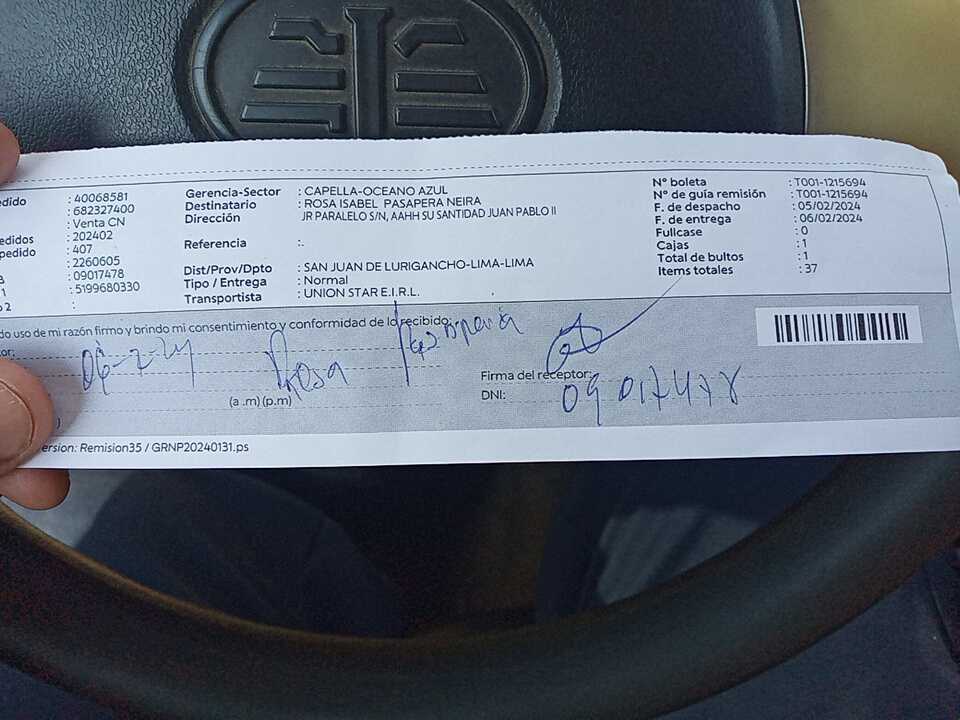 edido : 40068581
: 682327400
: Venta CN
edidos : 202402
pedido : 407
: 2260605
: 09017478
1 : 5199680330
o 2 :
Gerencia-Sector : CAPELLA-OCEANO AZUL
Destinatario : ROSA ISABEL PASAPERA NEIRA
Dirección JR PARALELO S/N, AAHH SU SANTIDAD JUAN PABLO II
Referencia :.
Dist/Prov/Dpto : SAN JUAN DE LURIGANCHO-LIMA-LIMA
Tipo / Entrega : Normal
Transportista : UNION STAR E.I.R.L.
N° boleta : T001-1215694
N° de guía remisión : T001-1215694
F. de despacho : 05/02/2024
F. de entrega : 06/02/2024
Fullcase : 0
Cajas : 1
Total de bultos : 1
Items totales : 37
do uso de mi razón firmo y brindo mi consentimiento y conformidad de lo recibido:
tor: 06-2-24 Rosa Pasapera
(a .m) (p.m)
Firma del receptor:
DNI: 09017478
ersion: Remision35 / GRNP20240131.ps